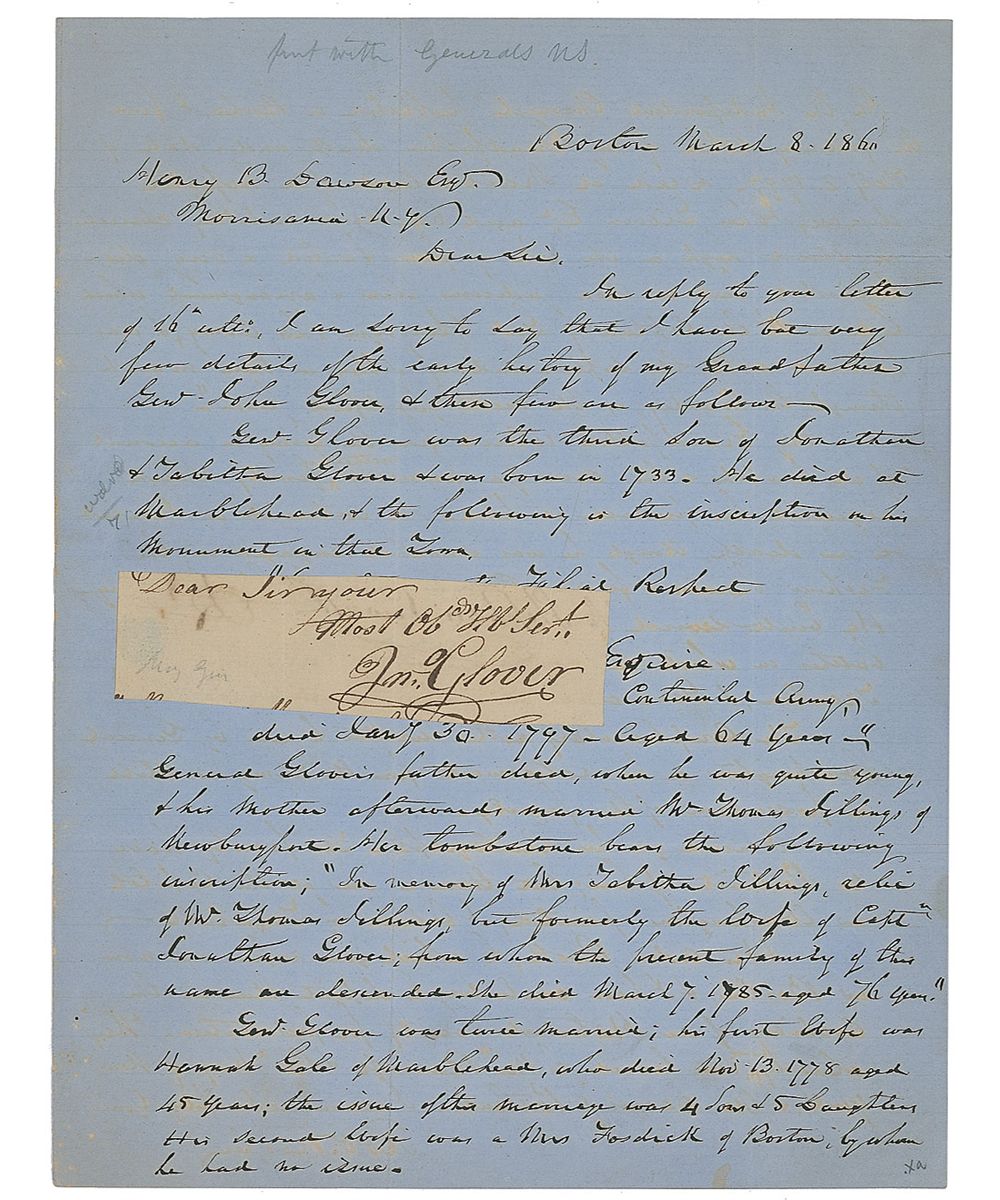 put with Generals NS.
Boston March 8. 1860
Henry B. Dawson Esq.
Morrisania N.Y.
Dear Sir.
In reply to your letter
of 16" ulto, I am sorry to say that I have but very
few details of the early history of my Grandfather
Genl. John Glover, & these few are as follows—
Genl. Glover was the third Son of Jonathan
& Tabitha Glover & was born in 1733. He died at
Marblehead, & the following is the inscription on his
Monument in that Town.
Filial Respect
Dear Sir your
Most Obdt Hble Sert.
Jno. Glover
Esquire.
Continental Army,
died Jany 30. 1797— aged 64 years—"
General Glover's father died, when he was quite young,
& his Mother afterwards married Mr Thomas Jillings of
Newburyport. Her tombstone bears the following
inscription; "In memory of Mrs Tabitha Jillings, relic
of Mr. Thomas Jillings, but formerly the Wife of Captn
Jonathan Glover; from whom the present family of this
name are descended. She died March 7. 1785 aged 76 years."
Genl. Glover was twice married; his first Wife was
Hannah Gale of Marblehead, who died Nov. 13. 1778 aged
45 years; the issue of this marriage was 4 Sons & 5 Daughters
His second Wife was a Mrs Fosdick of Boston, by whom
he had no issue.